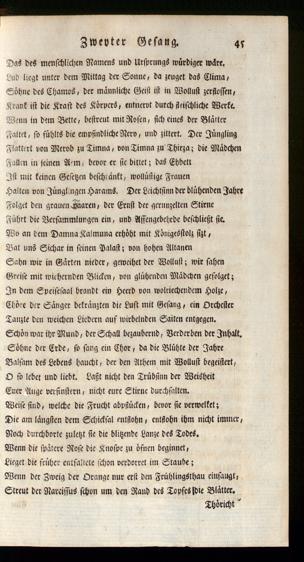 Zweyter Gesang. 45
Das des menschlichen Namens und Ursprungs würdiger wäre.
Lud liegt unter dem Mittag der Sonne, da zeuget das Clima,
Söhne des Chamos, der männliche Geist ist in Wollust zerflossen,
Krank ist die Kraft des Körpers, entnervt durch fleischliche Werke.
Wenn in dem Bette, bestreut mit Rosen, sich eines der Blätter
Faltet, so fühlts die empfindliche Nerv, und zittert. Der Jüngling
Flattert von Merob zu Timna, von Timna zu Thirza; die Mädchen
Fallen in seinen Arm, bevor er sie bittet; das Ehbett
Ist mit keinen Gesetzen beschränkt, wollüstige Frauen
Halten von Jünglingen Harams. Der Leichtsinn der blühenden Jahre
Folget den grauen Haaren, der Ernst der gerunzelten Stirne
Führt die Versammlungen ein, und Affengebehrde beschließt sie.
Wo an dem Damna Kalmuna erhöht mit Königesstolz sizt,
Bat uns Sichar in seinen Palast; von hohen Altanen
Sahn wir in Gärten nieder, geweihet der Wollust; wir sahen
Greise mit wiehernden Blicken, von glühenden Mädchen gefolget;
In dem Speisesaal brandt ein Heerd von wolriechendem Holze,
Chöre der Sänger bekränzten die Lust mit Gesang, ein Orchester
Tanzte den weichen Liedern auf wirbelnden Saiten entgegen.
Schön war ihr Mund, der Schall bezaubernd, Verderben der Inhalt.
Söhne der Erde, so sang ein Chor, da die Blühte der Jahre
Balsam des Lebens haucht, der den Athem mit Wollust begeistert,
O so lebet und liebt. Laßt nicht den Trübsinn der Weisheit
Euer Auge verfinstern, nicht eure Stirne durchfalten.
Weise sind, welche die Frucht abpflücken, bevor sie verwelket;
Die am längsten dem Schicksal entflohn, entflohn ihm nicht immer,
Noch durchborte zuletzt sie die blitzende Lanze des Todes.
Wenn die spätere Rose die Knospe zu öfnen beginnet,
Lieget die früher entfaltete schon verdorret im Staube;
Wenn der Zweig der Orange nur erst den Frühlingsthau einsaugt,
Streut der Narcissus schon um den Rand des Topfes die Blätter.
Thöricht